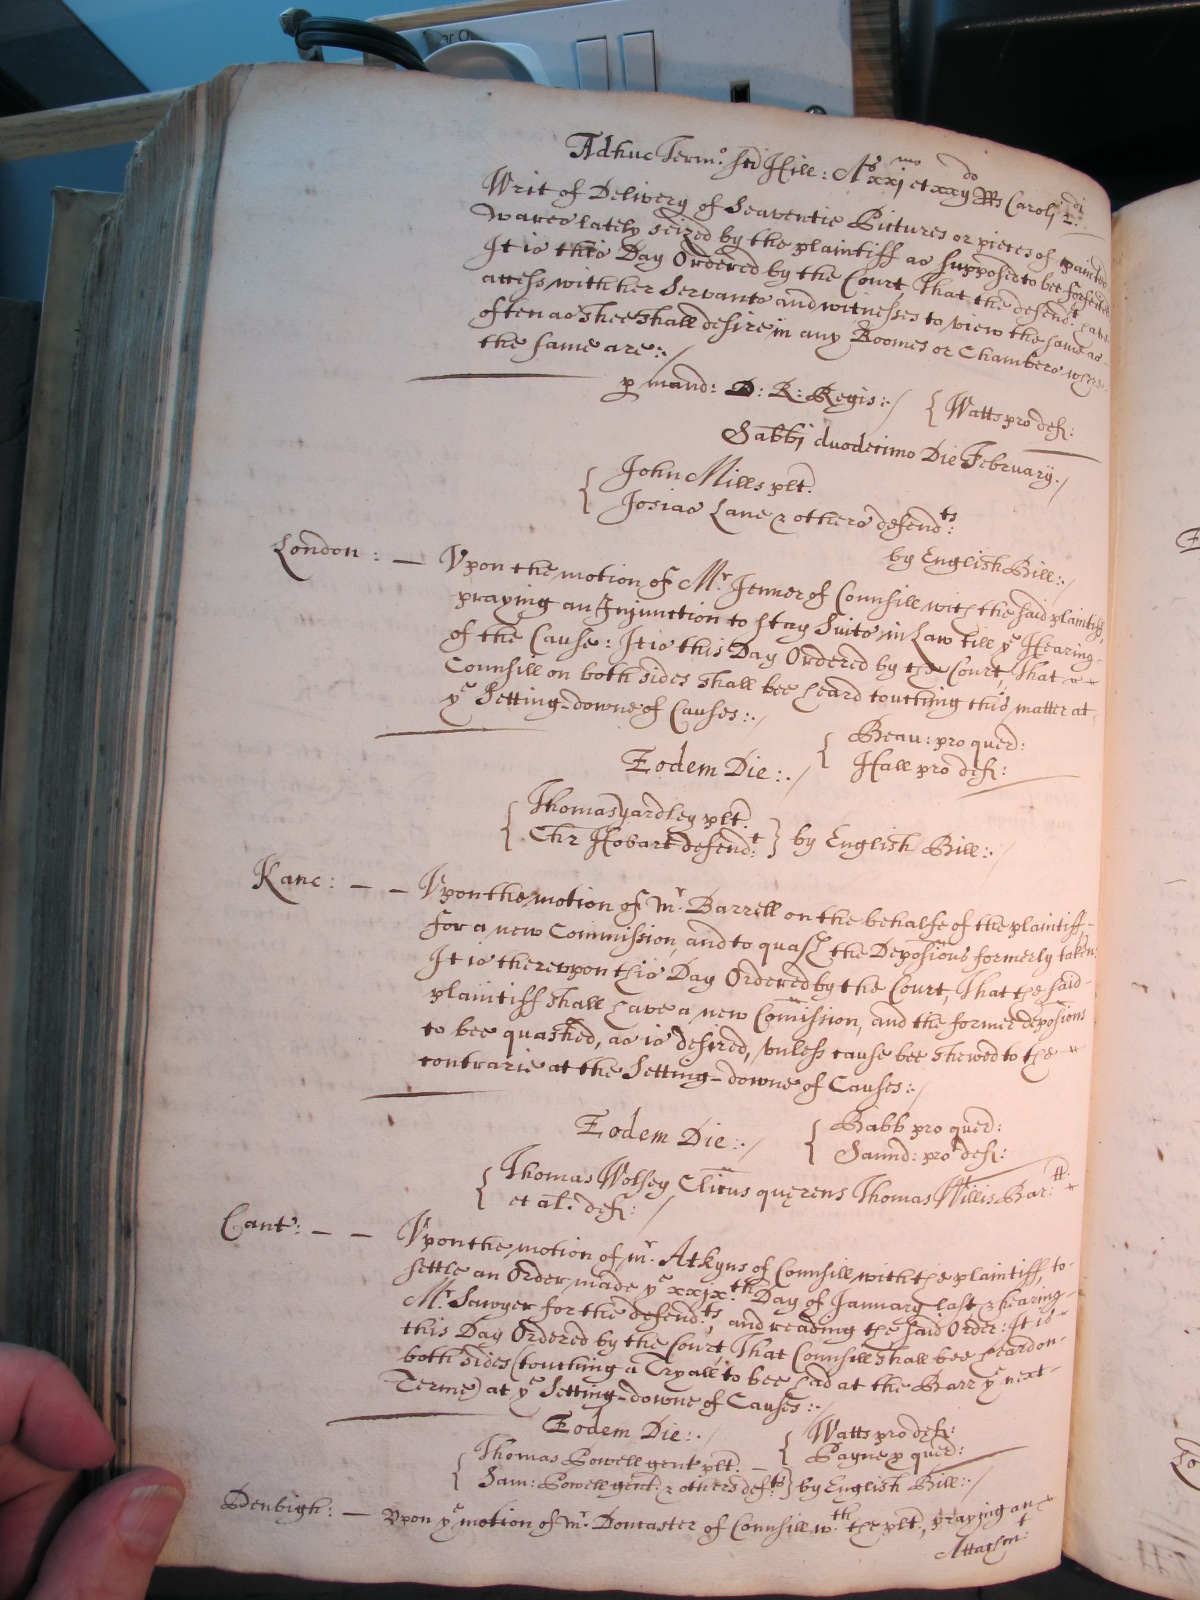 Adhuc Termo: Sti Hill: Ao xxjmo et xxijdo RRs Carolj 2di:
Writ of Delivery of Seaventie Pictures or pieces of painted
wares lately seized by the plaintiff as supposed to bee forfeited
It is this Day Ordered by the Court, That the defendt: have
access with her Servants and witnesses to view the same as
often as Shee Shall desire in any Roomes or Chambers where
the same are:./
p mand: D: R: Regis:./ { Watts pro deft:
Sabbj duodecimo Die February./
{ John Mills plt.
Josias Lane & others defendts:
by English Bill:./
London: — Vpon the motion of Mr. Jenner of Counsill with the said plaintiff,
praying an Injunction to stay Suits in Law till ye Hearing
of the Cause: It is this Day Ordered by the Court, That
Counsill on both sides shall bee heard touching this matter at
ye Setting-downe of Causes:./
Eodem Die:./ { Beau: pro quer:
Hall pro deft:
{ Thomas Yardley plt.
Chr Hobart defendt: } by English Bill:./
Kanc: — — Vpon the motion of mr. Barrell on the behalfe of the plaintiff,
for a new Commission, and to quash the Deposions formerly taken:
It is therevpon this Day Ordered by the Court, That the said
plaintiff shall have a new Comission, and the former deposions
to bee quashed, as is desired, vnless cause bee shewed to the
contrarie at the Setting-downe of Causes:./
Eodem Die:./ { Babb pro quer:
Saund: pro deft:
{ Thomas Wolsey Clicus querens Thomas Willis Bartt:
et al. deft: /
Cant: — — Vpon the motion of mr. Atkyns of Counsill with the plaintiff, to
settle an Order made ye xxjx.th Day of January last & hearing
Mr. Sawyer for the defendts:, and reading the said Order: It is
this Day Ordered by the Court That Counsill shall bee heard on
both sides (touching a Tryall to bee had at the Barr ye next
Terme) at ye Setting-downe of Causes:./
Eodem Die:./ { Watts pro deft:
Payne p quer:
{ Thomas Powell gent plt. —
Sam: Powell gent: & others defts: } by English Bill:./
Denbigh: — Vpon ye motion of mr. Doncaster of Counsill wth. the plt, praying an
Attachmt: